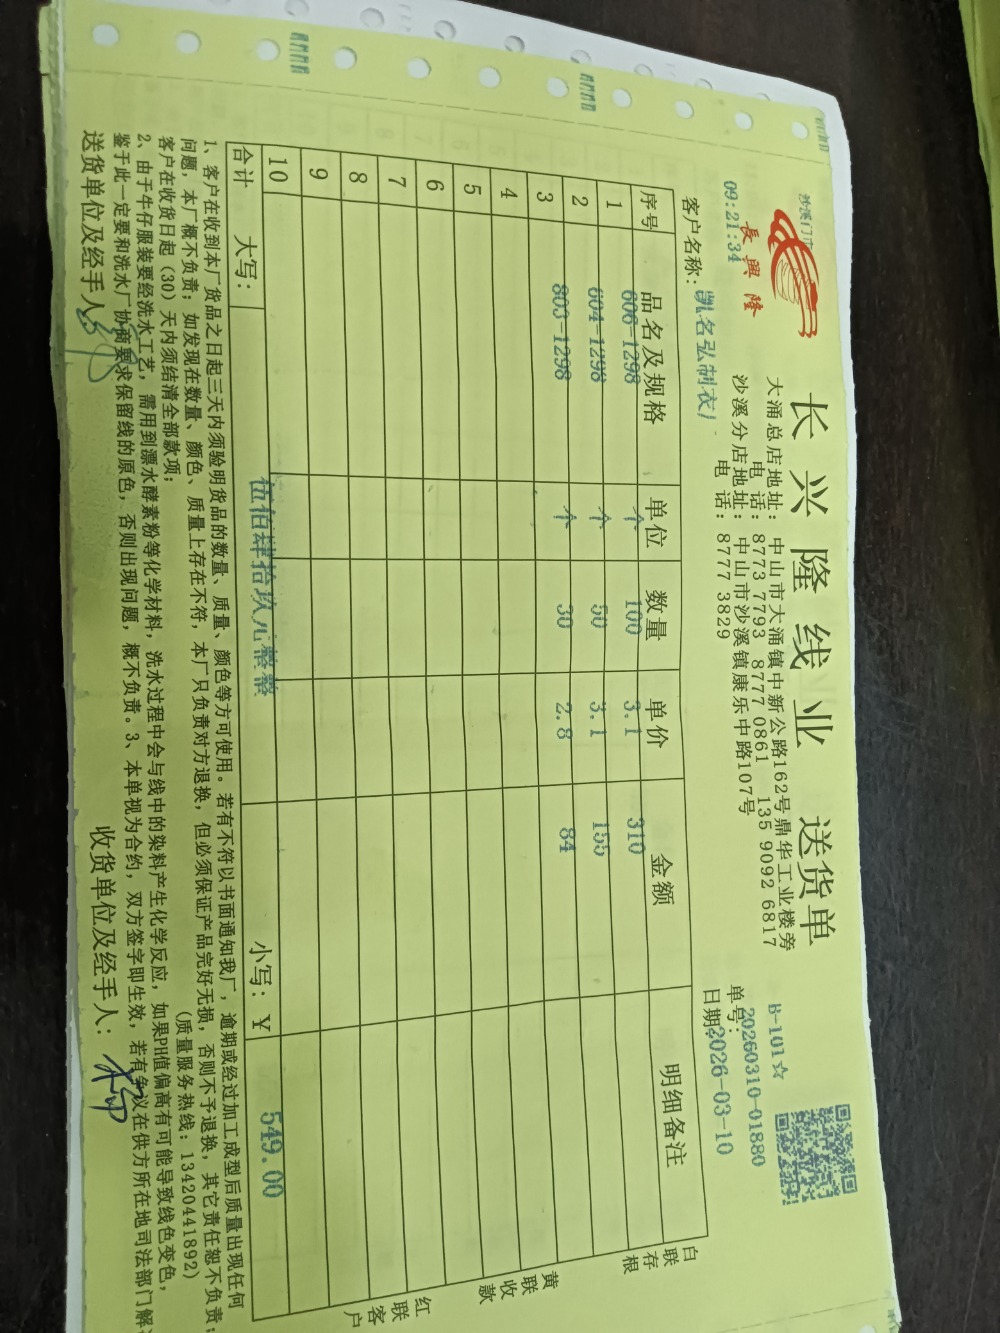 沙溪门市
09:21:34
長興隆
长兴隆线业 送货单
大涌总店地址：中山市大涌镇中新公路162号鼎华工业楼旁
电 话：8773 7793 8777 0861 135 9092 6817
沙溪分店地址：中山市沙溪镇康乐中路107号
电 话：8777 3829
B-101☆
单号：20260310-01880
日期：2026-03-10
客户名称：凯名弘制衣厂
序号 品名及规格 单位 数量 单价 金额 明细备注
1 606-1298 个 100 3.1 310
2 604-1298 个 50 3.1 155
3 803-1298 个 30 2.8 84
4
5
6
7
8
9
10
合计 大写：伍佰肆拾玖元整整 小写：¥ 549.00
白联存根
黄联收款
红联客户
1、客户在收到本厂货品之日起三天内须验明货品的数量、质量、颜色等方可使用。若有不符以书面通知我厂，逾期或经过加工成型后质量出现任何
问题，本厂概不负责；如发现在数量、颜色、质量上存在不符，本厂只负责对方退换，但必须保证产品完好无损，否则不予退换，其它责任恕不负责；
客户在收货日起（30）天内须结清全部款项；（质量服务热线：13420441892）
2、由于牛仔服装要经洗水工艺，需用到漂水酵素粉等化学材料，洗水过程中会与线中的染料产生化学反应，如果PH值偏高有可能导致线色变色，
鉴于此一定要和洗水厂协商要求保留线的原色，否则出现问题，概不负责。3、本单视为合约，双方签字即生效，若有争议在供方所在地司法部门解
送货单位及经手人： 收货单位及经手人：